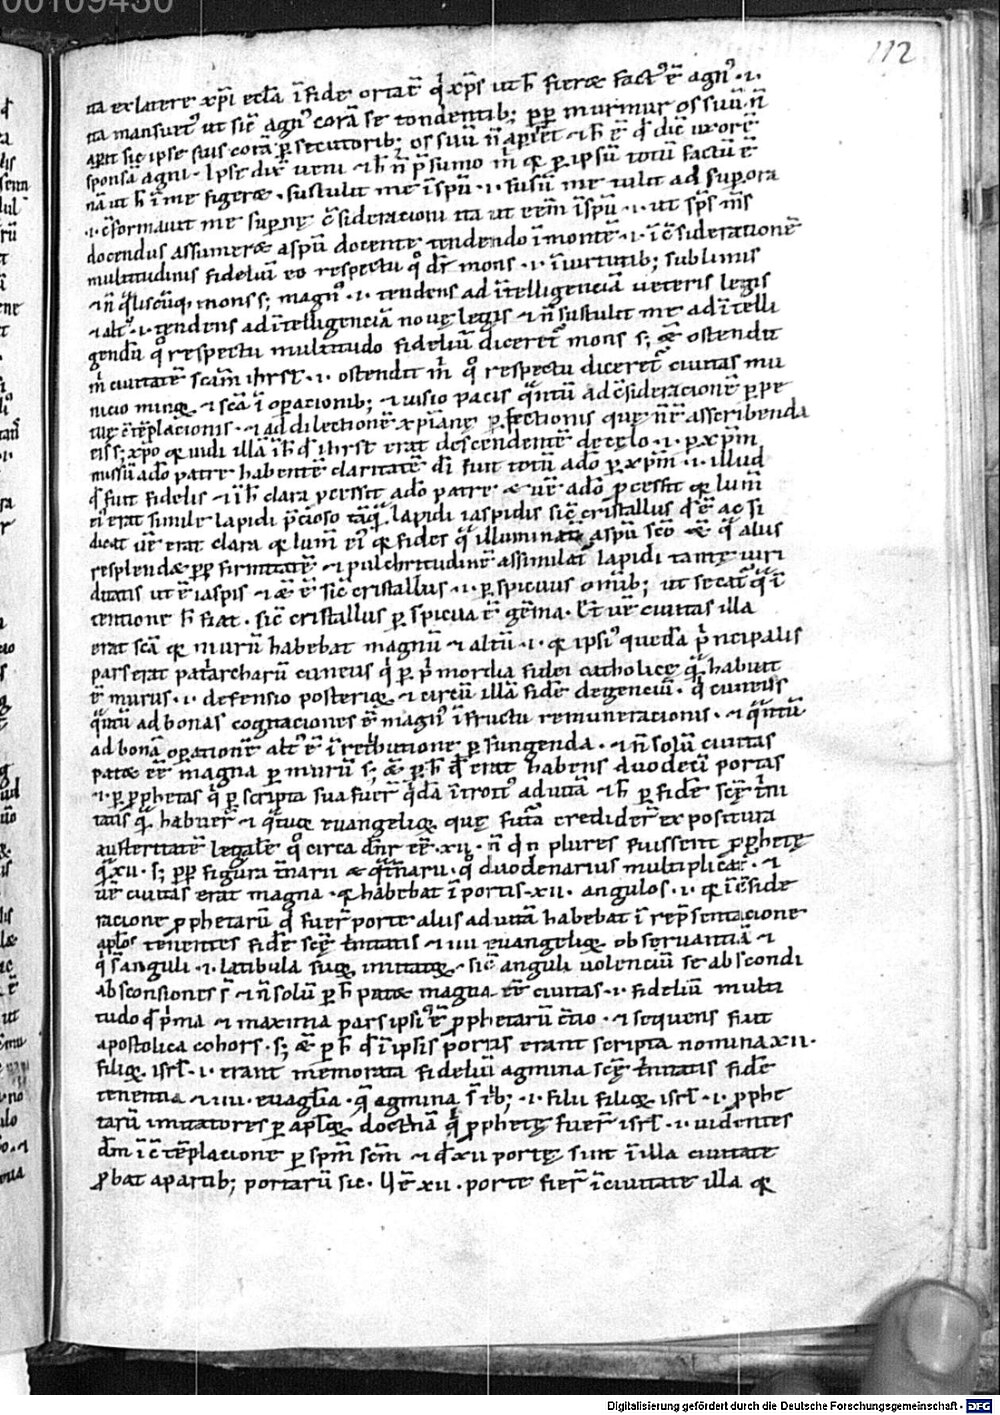 00109430
112
ita ex latere xp̄i eccl̄a ī fide orta ē q̄ xp̄s ut h̄ fieret factꝰ ē agnꝰ · i ·
ita mansuetꝰ ut sic̄ agnꝰ corā se tondentib; ꝑp murmur os suū n̄
aperit sic ipse suis corā ꝑsecutorib; os suū n̄ aperiret ⁊ h̄ ē qd̄ dic̄ uxorē
sponsā agni · Ipse dix̄ ueni ⁊ h̄ n̄ p̄sumo m̄ qꝛ ꝑ ipsū totū factū ē
nā ut h̄ ī me figeret · sustulit me ī spū · i · susū me tulit ad supora
· i · c̄formauit me supnę c̄sideracioni ita ut eēm ī spū · i · ut sp̄s m̄s
docendus assumeret a spū docente tendendo ī monte · i · ī c̄sideratione
multitudinis fideliū eo respectu qͦ dr̄ mons · i · ī uirtutib; sublimis
⁊ n̄ qͣliscūq; mons s; magnꝰ · i · tendens ad ītelligenciā ueteris legis
⁊ altꝰ · i · tendens ad ītelligenciā nouę legis ⁊ n̄ sustulit me ad ītelli
gendū qͦ respectu multitudo fideliū diceret᷑ mons s; et̄ ostendit
m̄ ciuitatē sc̄am ihrsl̄ · i · ostendit m̄ qͦ respectu diceret᷑ ciuitas mu
nicio minq; ⁊ sc̄a ī opacionib; ⁊ uisio pacis qͣntū ad c̄sideracionē ꝑpe
tuę c̄tēplacionis · ⁊ ad dilectionē xp̄ianę ꝑfectionis quę n̄ē asscribenda
eis s; xp̄o qꝛ uidi illā ī h̄ qd̄ ihrsl̄ erat descendentē de cęlo · i · ꝑ xp̄m
missū a dō patre habentē claritatē dī fuit totū a dō ꝑ xp̄m · i · illud
qd̄ fuit fidelis ⁊ ī h̄ clara ꝑcessit a dō patre et uē a dō ꝑcessit qꝛ lumē
eiꝰ erat simile lapidi p̄cioso tāqͣ lapidi iaspidis sic̄ cristallus qd̄ ē ac si
dicat uē erat clara qꝛ lumē eiꝰ qꝛ fides qͣ illuminata a spū sc̄o et̄ qͣ alius
resplendet ꝑp firmitatē ⁊ pulchritudinē assimilat᷑ lapidi tantę uiri
ditatis ut ē iaspis ⁊ et̄ ē sic̄ cristallus · i · ꝑspicuus omīb; ut secat᷑ qͣ ī
tentione h̄ fiat · sic̄ cristallus ꝑspicua ē gēma · Et uē ciuitas illa
erat sc̄a qꝛ murū habebat magnū ⁊ altū · i · qꝛ ipsiꝰ quedā p̄ncipalis
pars erat patͥarcharū cuneus qͥ ꝑ pͥmordia fidei catholicę qͣ habuit
ē murus · i · defensio posteriq; ⁊ circū illā fidē degenciū · qͥ cuneus
qͣntū ad bonas cogitaciones ē magnꝰ ī fructu remuneracionis · ⁊ qͣntū
ad bonā opationē altꝰ ē ī retͥbutione ꝑfungenda · ⁊ n̄ solū ciuitas
patet eē magna ꝑ murū s; et̄ ꝑ h̄ qd̄ erat habens duodecī portas
· i · ꝑ ꝓphetas qͥ ꝑ scripta sua fuer̄ qͥdā ītroitꝰ ad uitā ⁊ h̄ ꝑ fidē scę tͥni
tatis qͣ habuer̄ ⁊ qͣtuor euangelioꝝ quę futͣa credider̄ expositura
austeritatē legale qͦ circa dn̄r eē · xii · n̄ qd̄ n̄ plures fuissent ꝓphetę
qͣ xii · s; ꝑp figura tͥnarii et qͣtͥnarii qͦ duodenarius multiplicat᷑ · ⁊
uē ciuitas erat magna · qꝛ habebat ī portis xii · angulos · i · qꝛ ī c̄side
racione ꝓphetarū qd̄ fuer̄ porte aliis ad uitā habebat ī rep̄sentacione
apl̄os tenentes fidē scę tͥnitatis ⁊ iiii euangelioꝝ obseruantiā ⁊
qͥ s̄ anguli · i · latibula suoꝝ imitatoꝝ · sic̄ anguli uolenciū se abscondi
absconsiones s̄ ⁊ n̄ solū ꝑ h̄ patet magna eē ciuitas · i · fideliū multi
tudo qd̄ pͥma ⁊ maxima pars ipsiꝰ ē ꝓphetarū c̄tio · ⁊ sequens fiat
apostolica cohors · s; et̄ ꝑ h̄ qd̄ ī ipsis portis erant scripta nomina xii ·
filioꝝ isrl̄ · i · erant memorata fideliū agmina scę tͥnitatis fidē
tenentia ⁊ iiii · euagl̄ia · qͣ agmina s̄ tͥb; · i · filii filioꝝ isrl̄ · i · ꝓphe
tarū imitatores ꝑ apl̄oꝝ doctͥnā qͥ ꝓphetę fuer̄ isrl̄ · i · uidentes
dm̄ ī c̄tēplacione ꝑ spm̄ scm̄ ⁊ qd̄ xii portę sunt ī illa ciuitate
ꝓbat a partib; portarū sic · H̄ ē xii · porte fier̄ ī ciuitate illa qꝛ
Digitalisierung gefördert durch die Deutsche Forschungsgemeinschaft - DFG